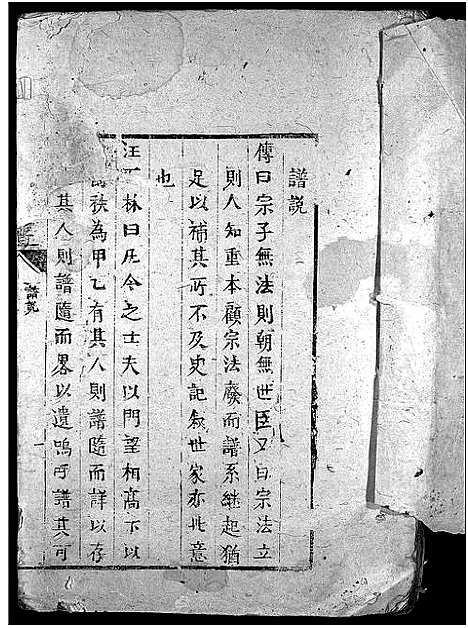 譜説
傳曰宗子無法則朝無世臣又曰宗法立
則人知重本顧宗法廢而譜系継起猶
足以補其所不及史記叙世家亦此意
也
汪 林曰凡今之士夫以門望相高下以
秩為甲乙有其人則譜隨而詳以存
其人則譜隨而畧以遺嗚呼譜其可
譜説